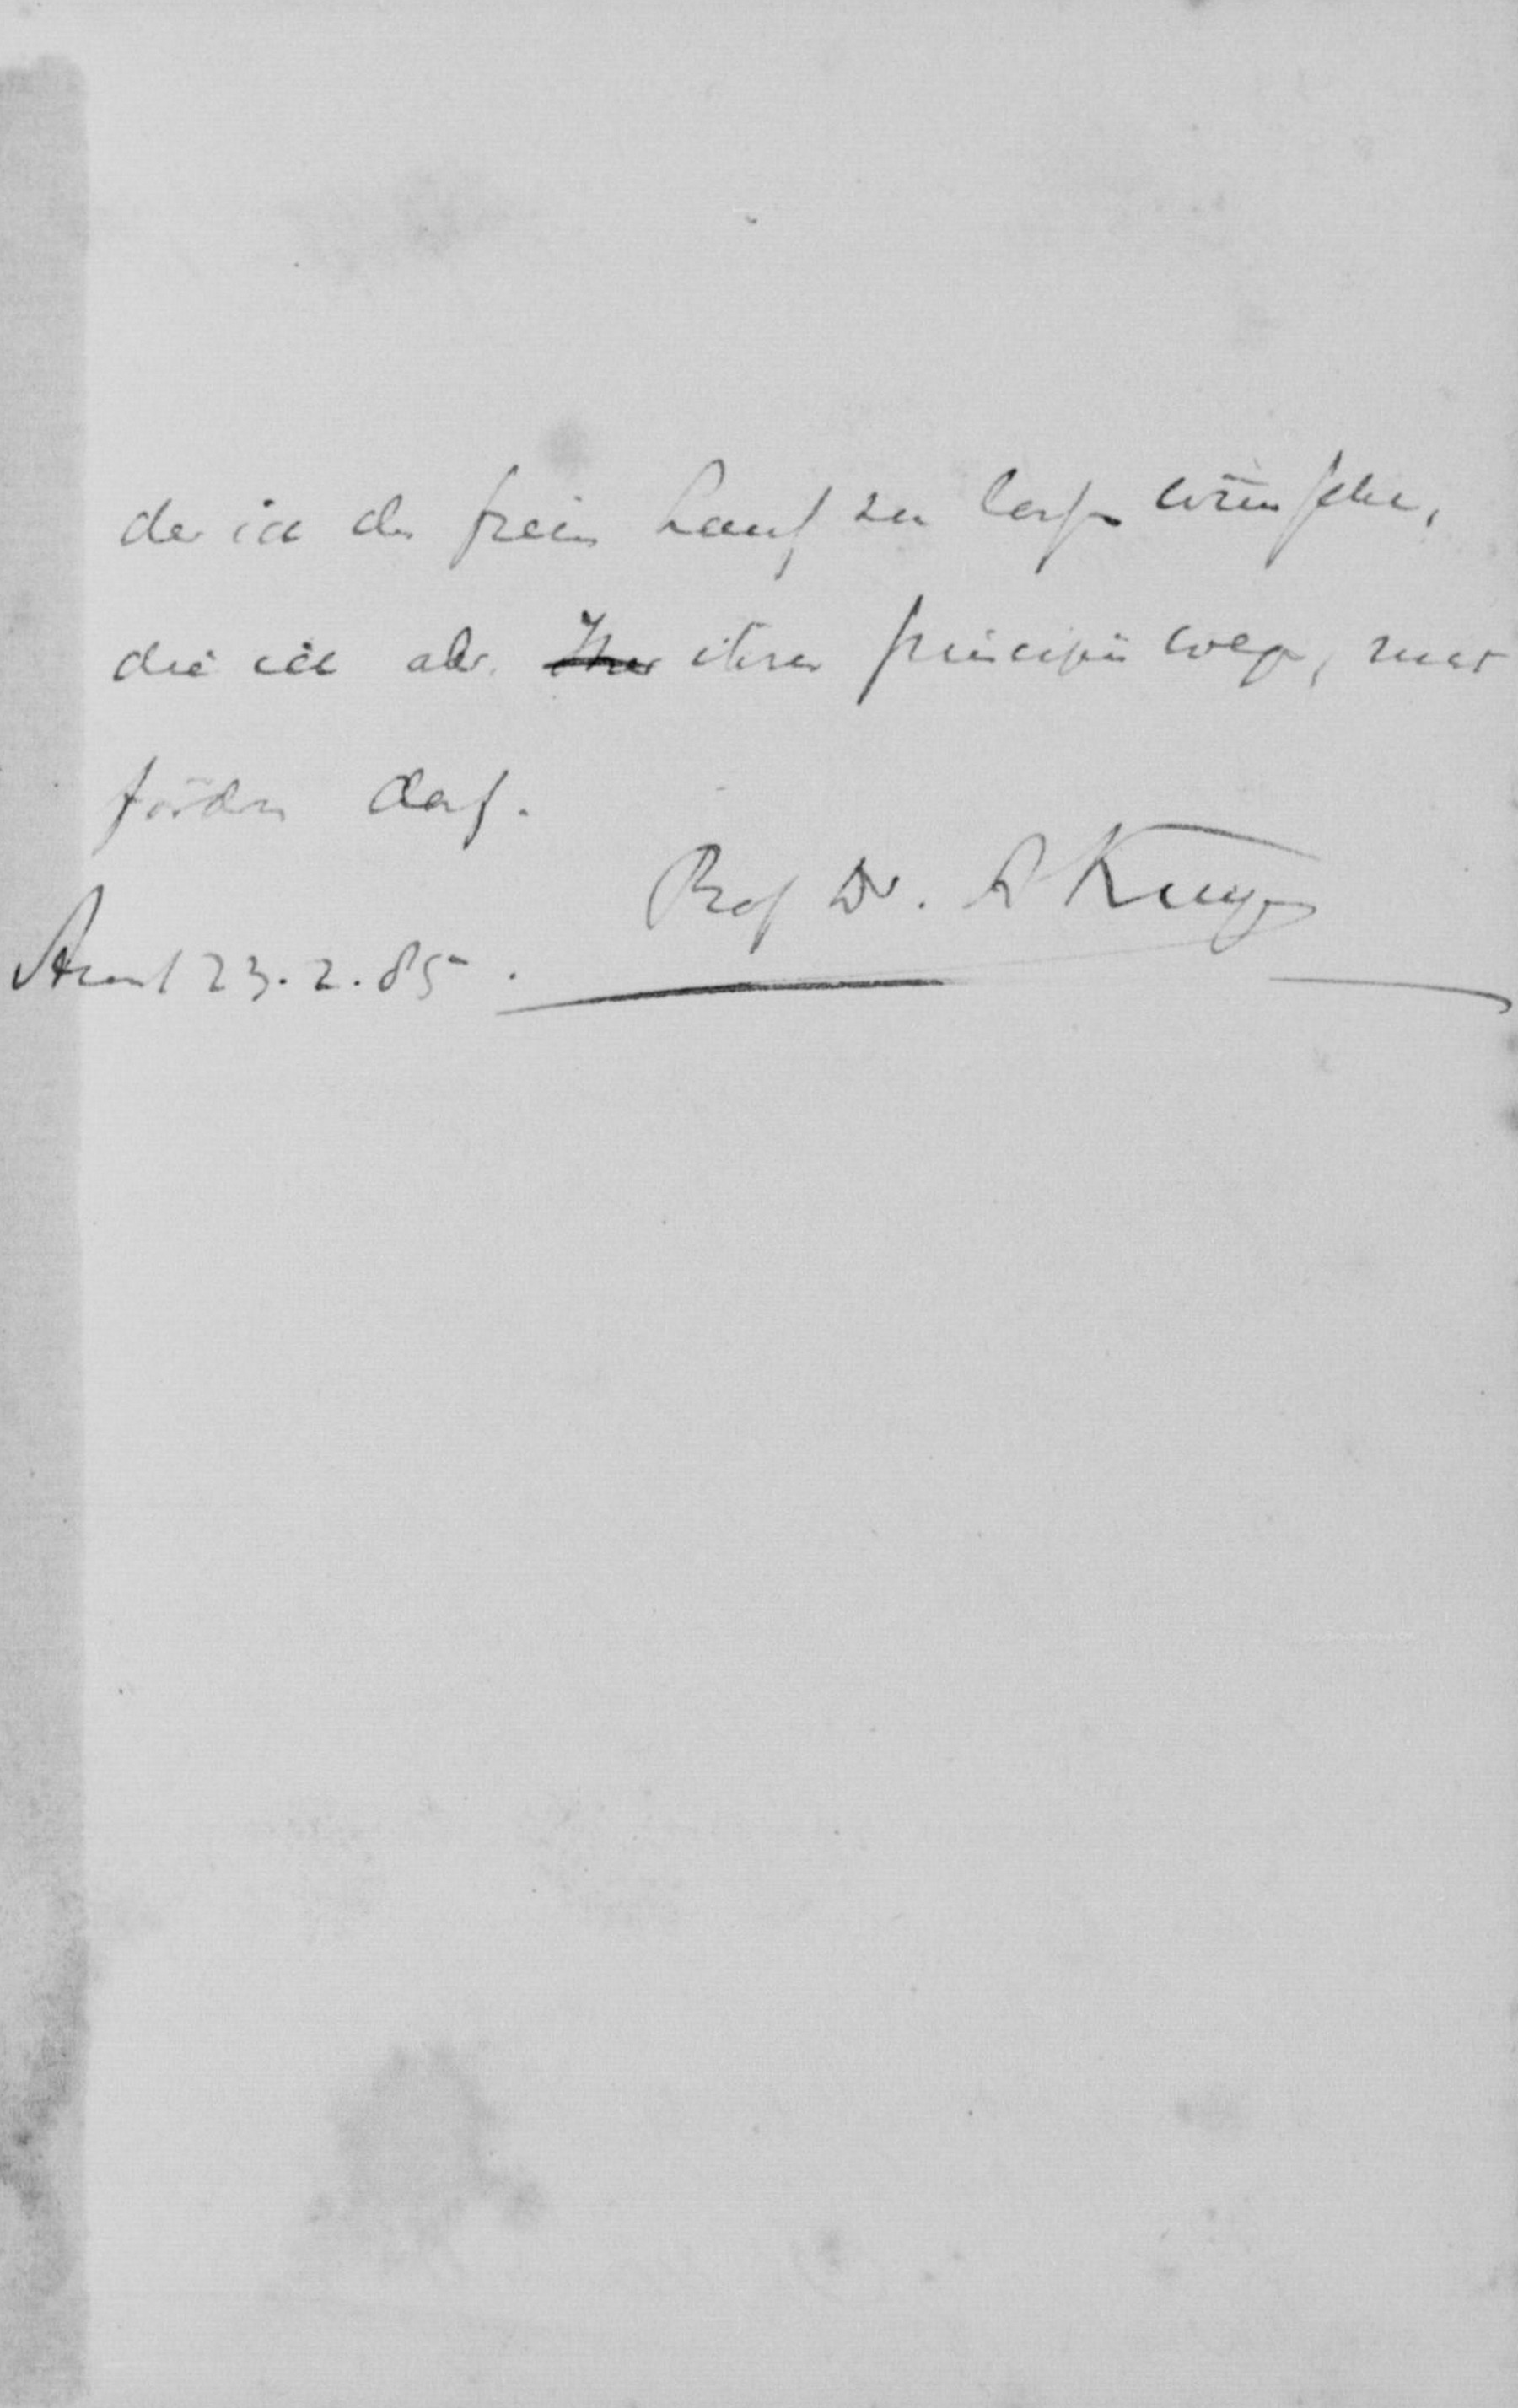 der ich den freien Lauf zu lassen wünsche,
die ich aber Ihrer ihrer principien wegen, nicht
fördern darf.
Prof Dr. A Kuyper
Amst 23.2.85.